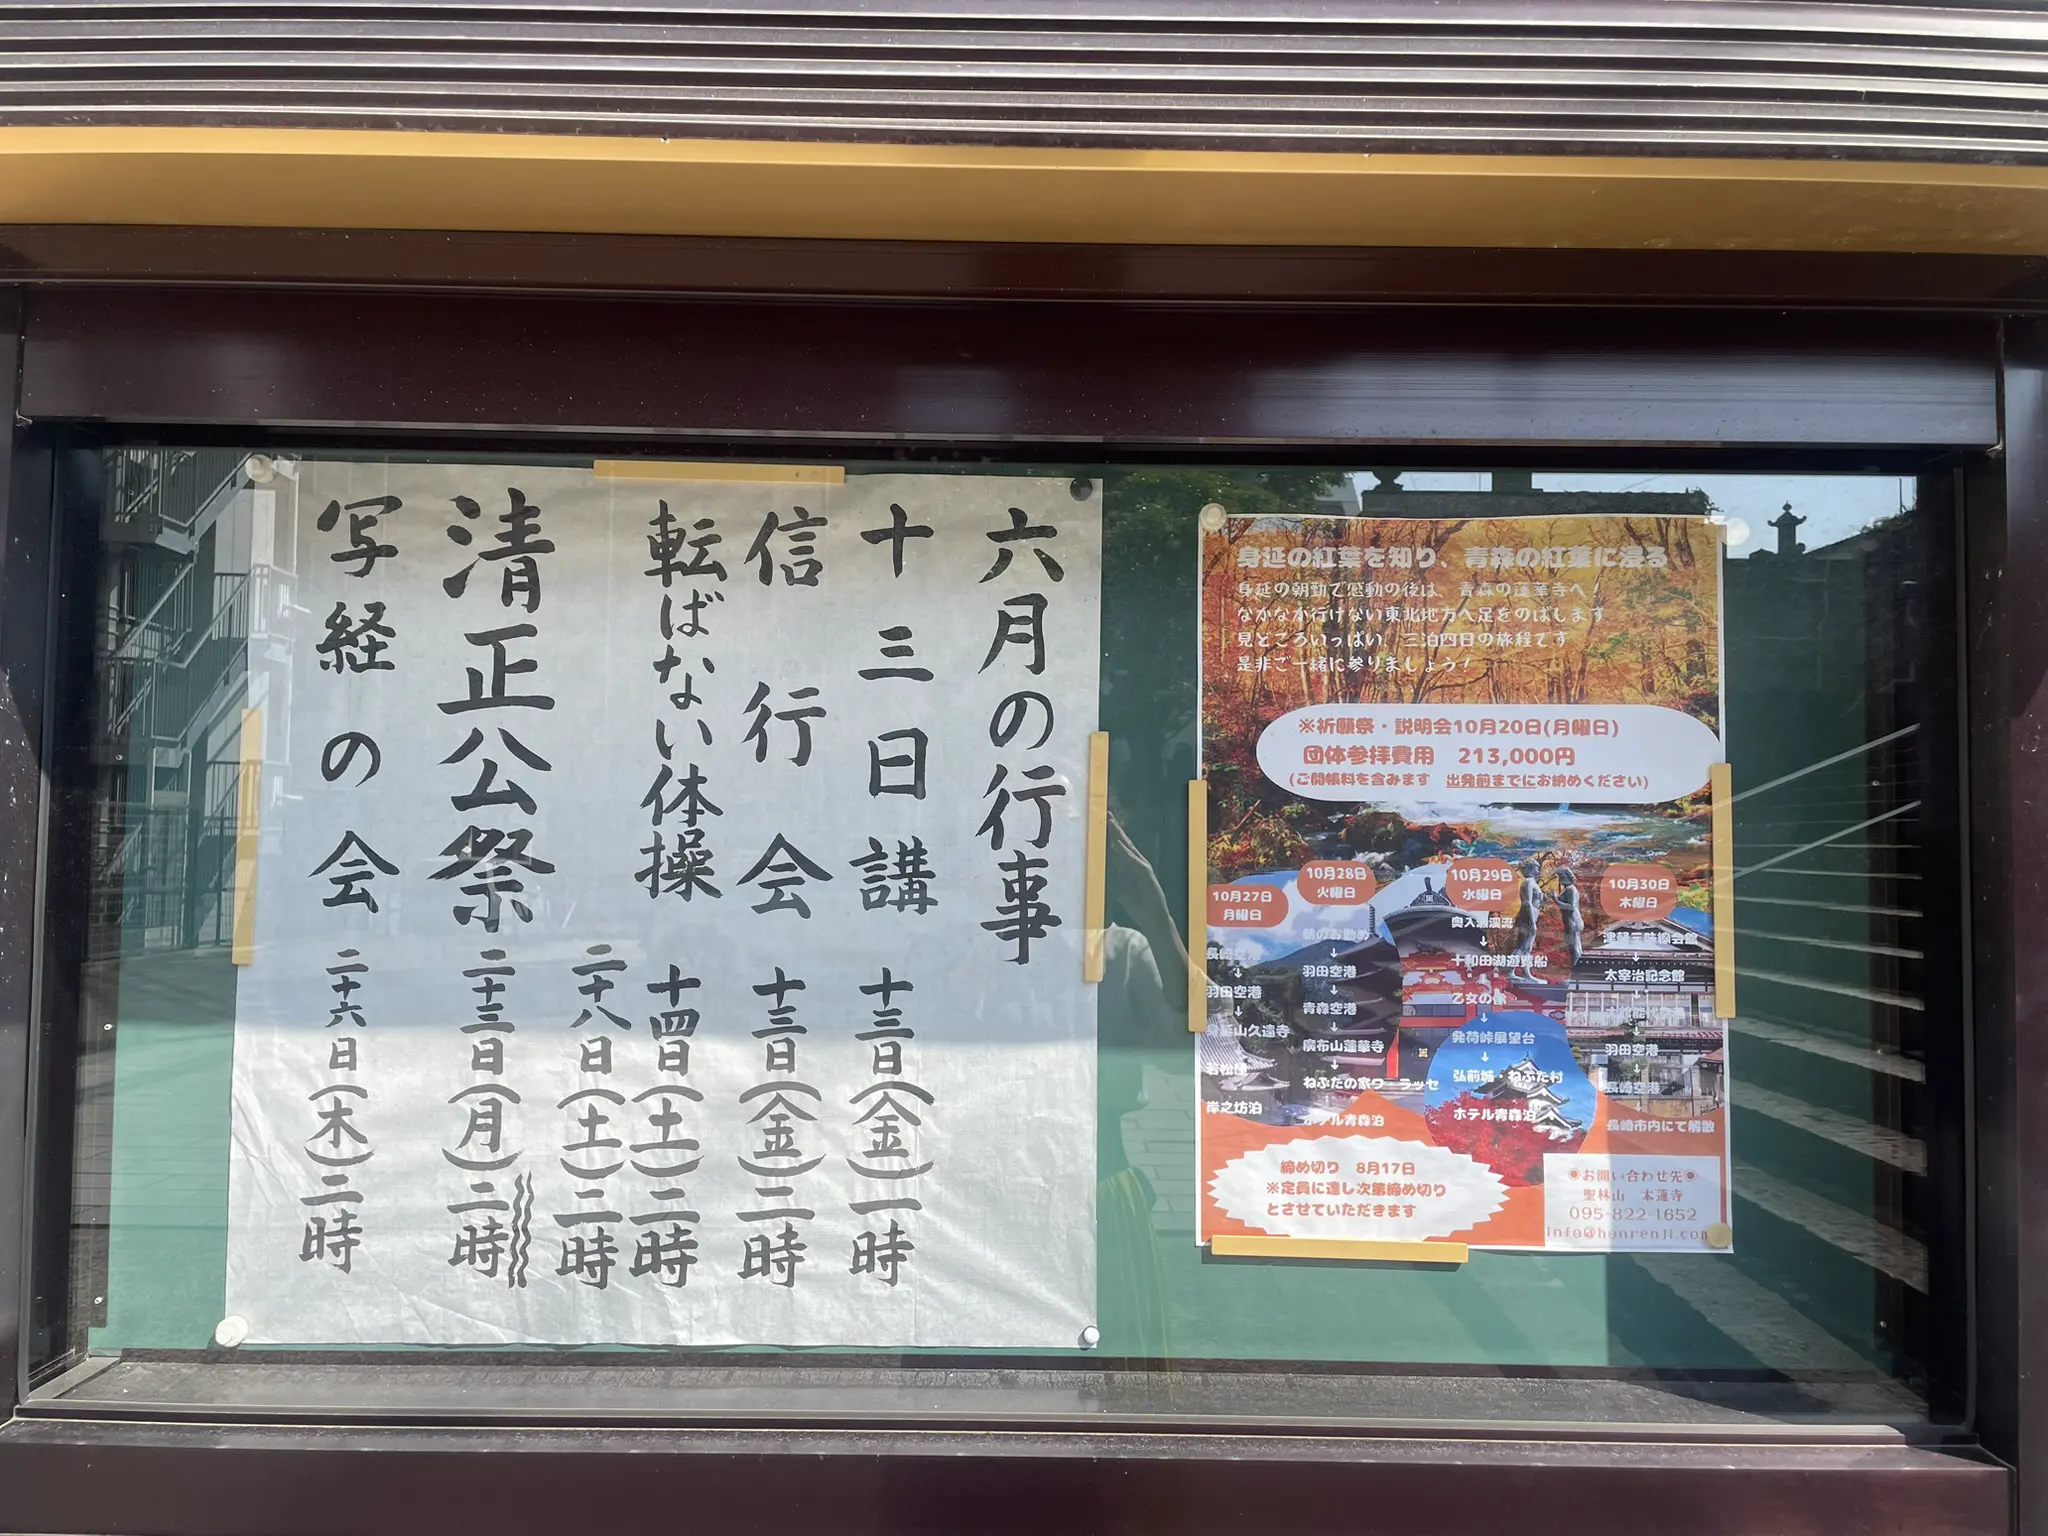 六月の行事
十三日講 十三日(金)一時
信行会 十三日(金)二時
転ばない体操 十四日(土)二時
二十八日(土)二時
清正公祭 二十三日(月)二時
写経の会 二十六日(木)二時
身延の紅葉を知り、青森の紅葉に浸る
身延の朝勤で感動の後は、青森の蓮華寺へ!
なかなか行けない東北地方へ足をのばします
見どころいっぱい、三泊四日の旅程です
是非ご一緒に参りましょう!
※祈願祭・説明会10月20日(月曜日)
団体参拝費用 213,000円
(ご開帳料を含みます 出発前までにお納めください)
10月27日
月曜日
長崎空港
↓
羽田空港
↓
身延山久遠寺
岸之坊泊
10月28日
火曜日
朝のお勤め
↓
羽田空港
↓
青森空港
↓
廣布山蓮華寺
↓
ねぶたの家ワ・ラッセ
ホテル青森泊
10月29日
水曜日
奥入瀬渓流
↓
十和田湖遊覧船
↓
乙女の像
↓
発荷峠展望台
↓
弘前城・ねぷた村
↓
ホテル青森泊
10月30日
木曜日
津軽三味線会館
↓
太宰治記念館
↓
↓
羽田空港
↓
長崎空港
↓
長崎市内にて解散
締め切り 8月17日
※定員に達し次第締め切り
とさせていただきます
◉お問い合わせ先◉
聖林山 本蓮寺
095-822-1652
info@honrenji.com